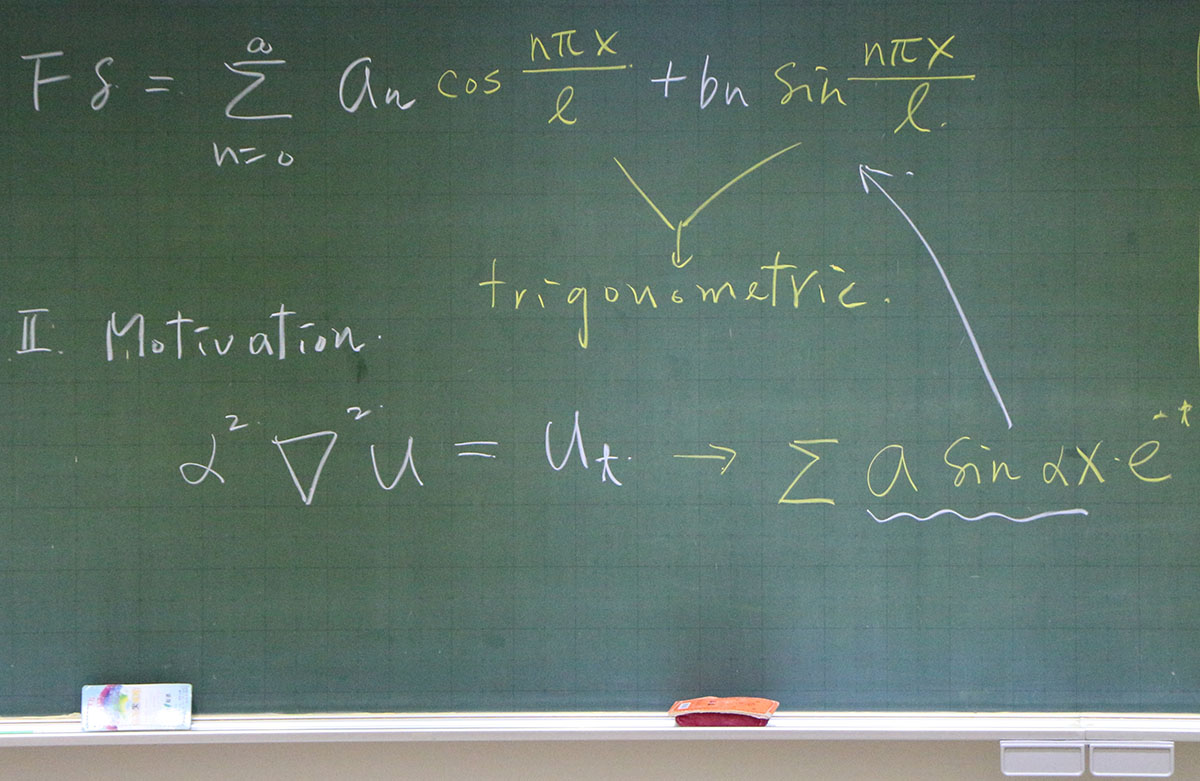 FS = ∞∑n=0 an cos nπx/l + bn sin nπx/l.
trigonometric.
II. Motivation.
α² ∇² u = ut. → ∑ a sin αx · e^-t